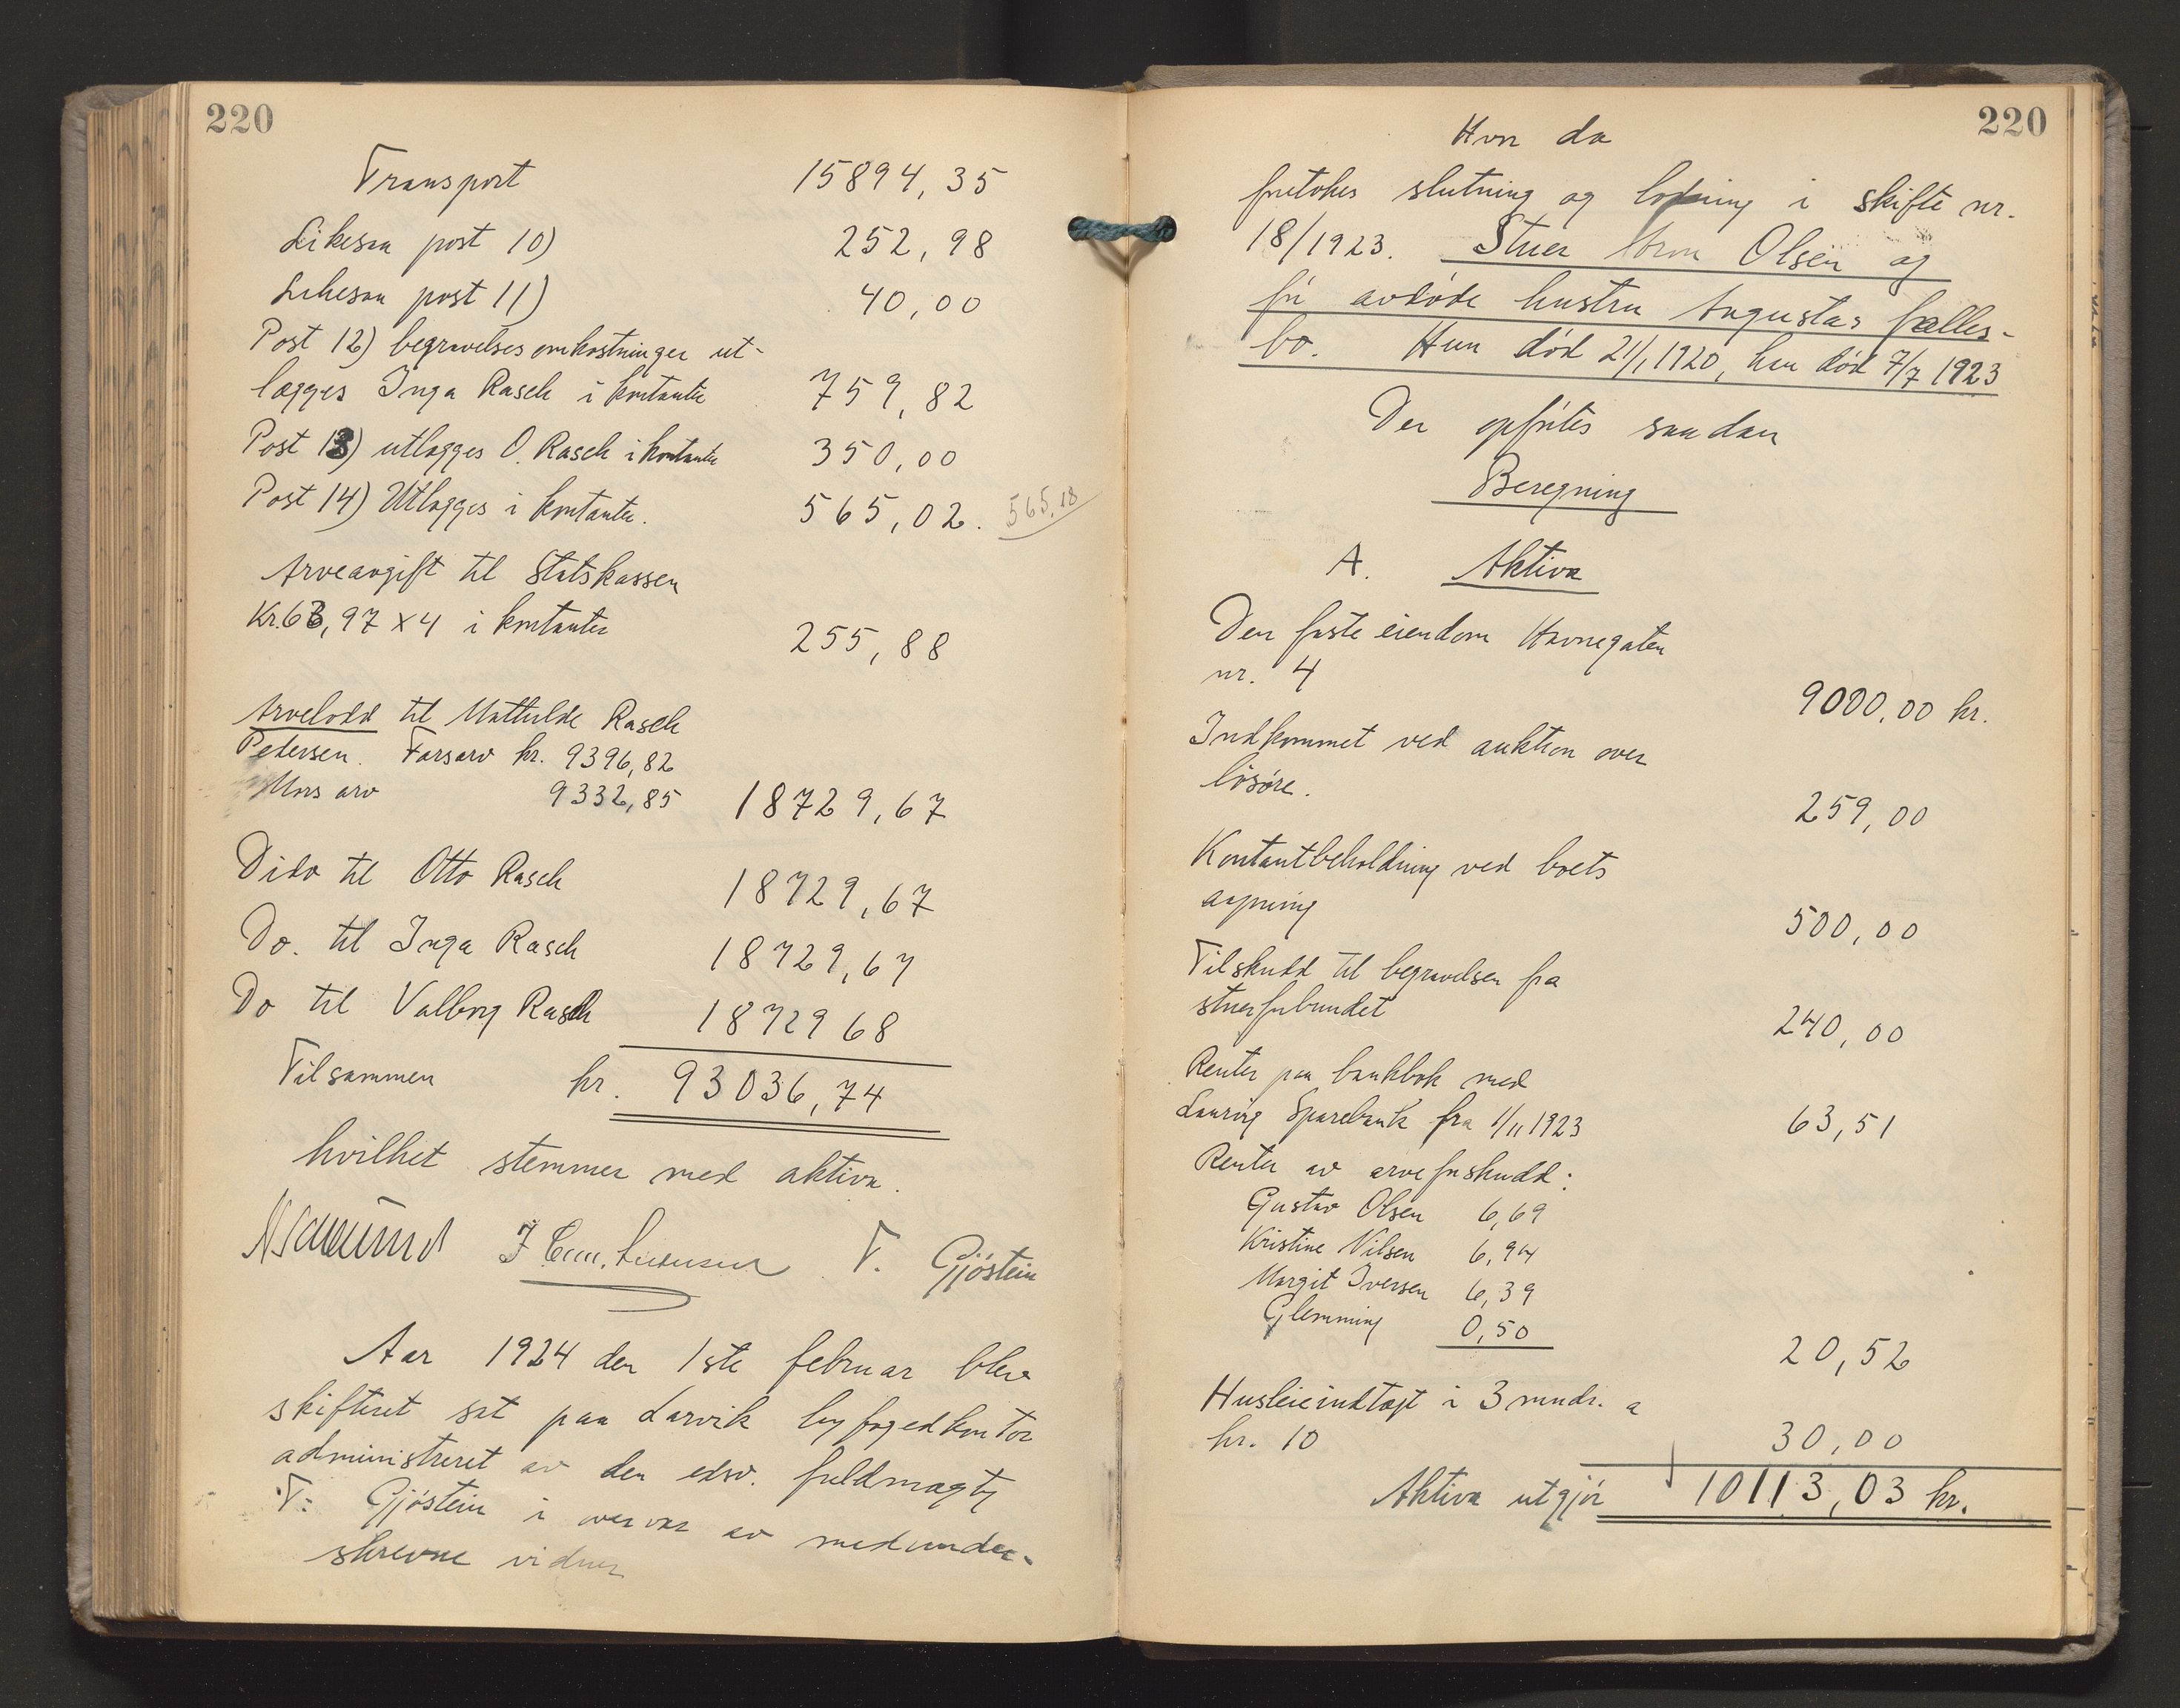 220
Transport 15894,35
Likesaa post 10) 252,98
Likesaa post 11) 40,00
Post 12) begravelsesomkostninger ut-
lægges Inga Rasch i kontanter 759,82
Post 13) utlægges O. Rasch i kontanter 350,00
Post 14) Utlægges i kontanter. 565,02. 565,18
Arveavgift til Statskassen
Kr. 63,97 x 4 i kontanter 255,88
Arvelodd til Mathilde Rasch
Petersen. Farsarv kr. 9396,82
Mors arv 9332,85 18729,67
Dido til Otto Rasch 18729,67
Do. til Inga Rasch 18729,67
Do til Valborg Rasch 18729 68
Tilsammen kr. 93036,74
hvilket stemmer med aktiva.
T. Gjöstein
Aar 1924 den 1ste februar blev
skifteret sat paa Larvik byfogedkontor
administreret av den edsv. fuldmægtig
T. Gjöstein i overvær av medunder-
skrevne vidner
220
Hvor da
foretokes slutning og lodning i skifte nr.
18/1923. Stuer Aron Olsen og
før avdøde hustru Augustas fælles-
bo. Hun død 21/1 1920, han død 7/7 1923
Der opførtes saadan
Beregning
A. Aktiva
Den faste eiendom Havnegaten
nr. 4 9000,00 kr.
Indkommet ved auktion over
løsøre. 259,00
Kontantbeholdning ved boets
aapning 500,00
Tilskudd til begravelsen fra
stuerforbundet 240,00
Renter paa bankbok med
Laurvig Sparebank fra 1/11 1923 63,51
Renter av arveforskudd:
Gustav Olsen 6,69
Kristine Nilsen 6,94
Margit Iversen 6,39
Glemming 0,50
20,52
Husleieindtægt i 3 mndr. a
kr. 10 30,00
Aktiva utgjør 10113,03 kr.